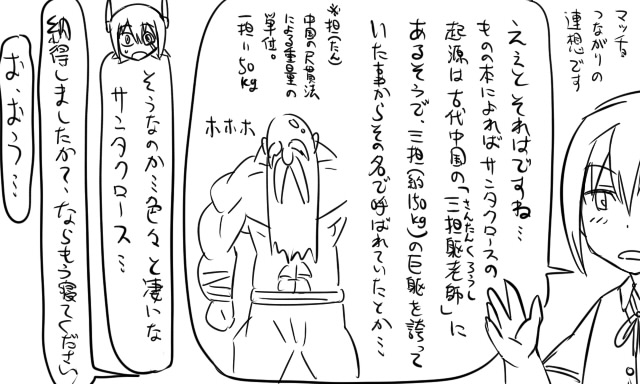 マッチョ
つながりの
連想です
ええとそれはですね…
ものの本によればサンタクロースの
起源は古代中国の「三担躯老師」に
さんたんくろうし
あるそうで、三担(約150kg)の巨躯を誇って
いた事からその名で呼ばれていたとか…
※担(たん)
中国の尺貫法
による重量の
単位。
一担=50kg
ホホホ
そうなのか…色々と凄いな
サンタクロース…
納得しましたか?、ならもう寝てください
お、おう…